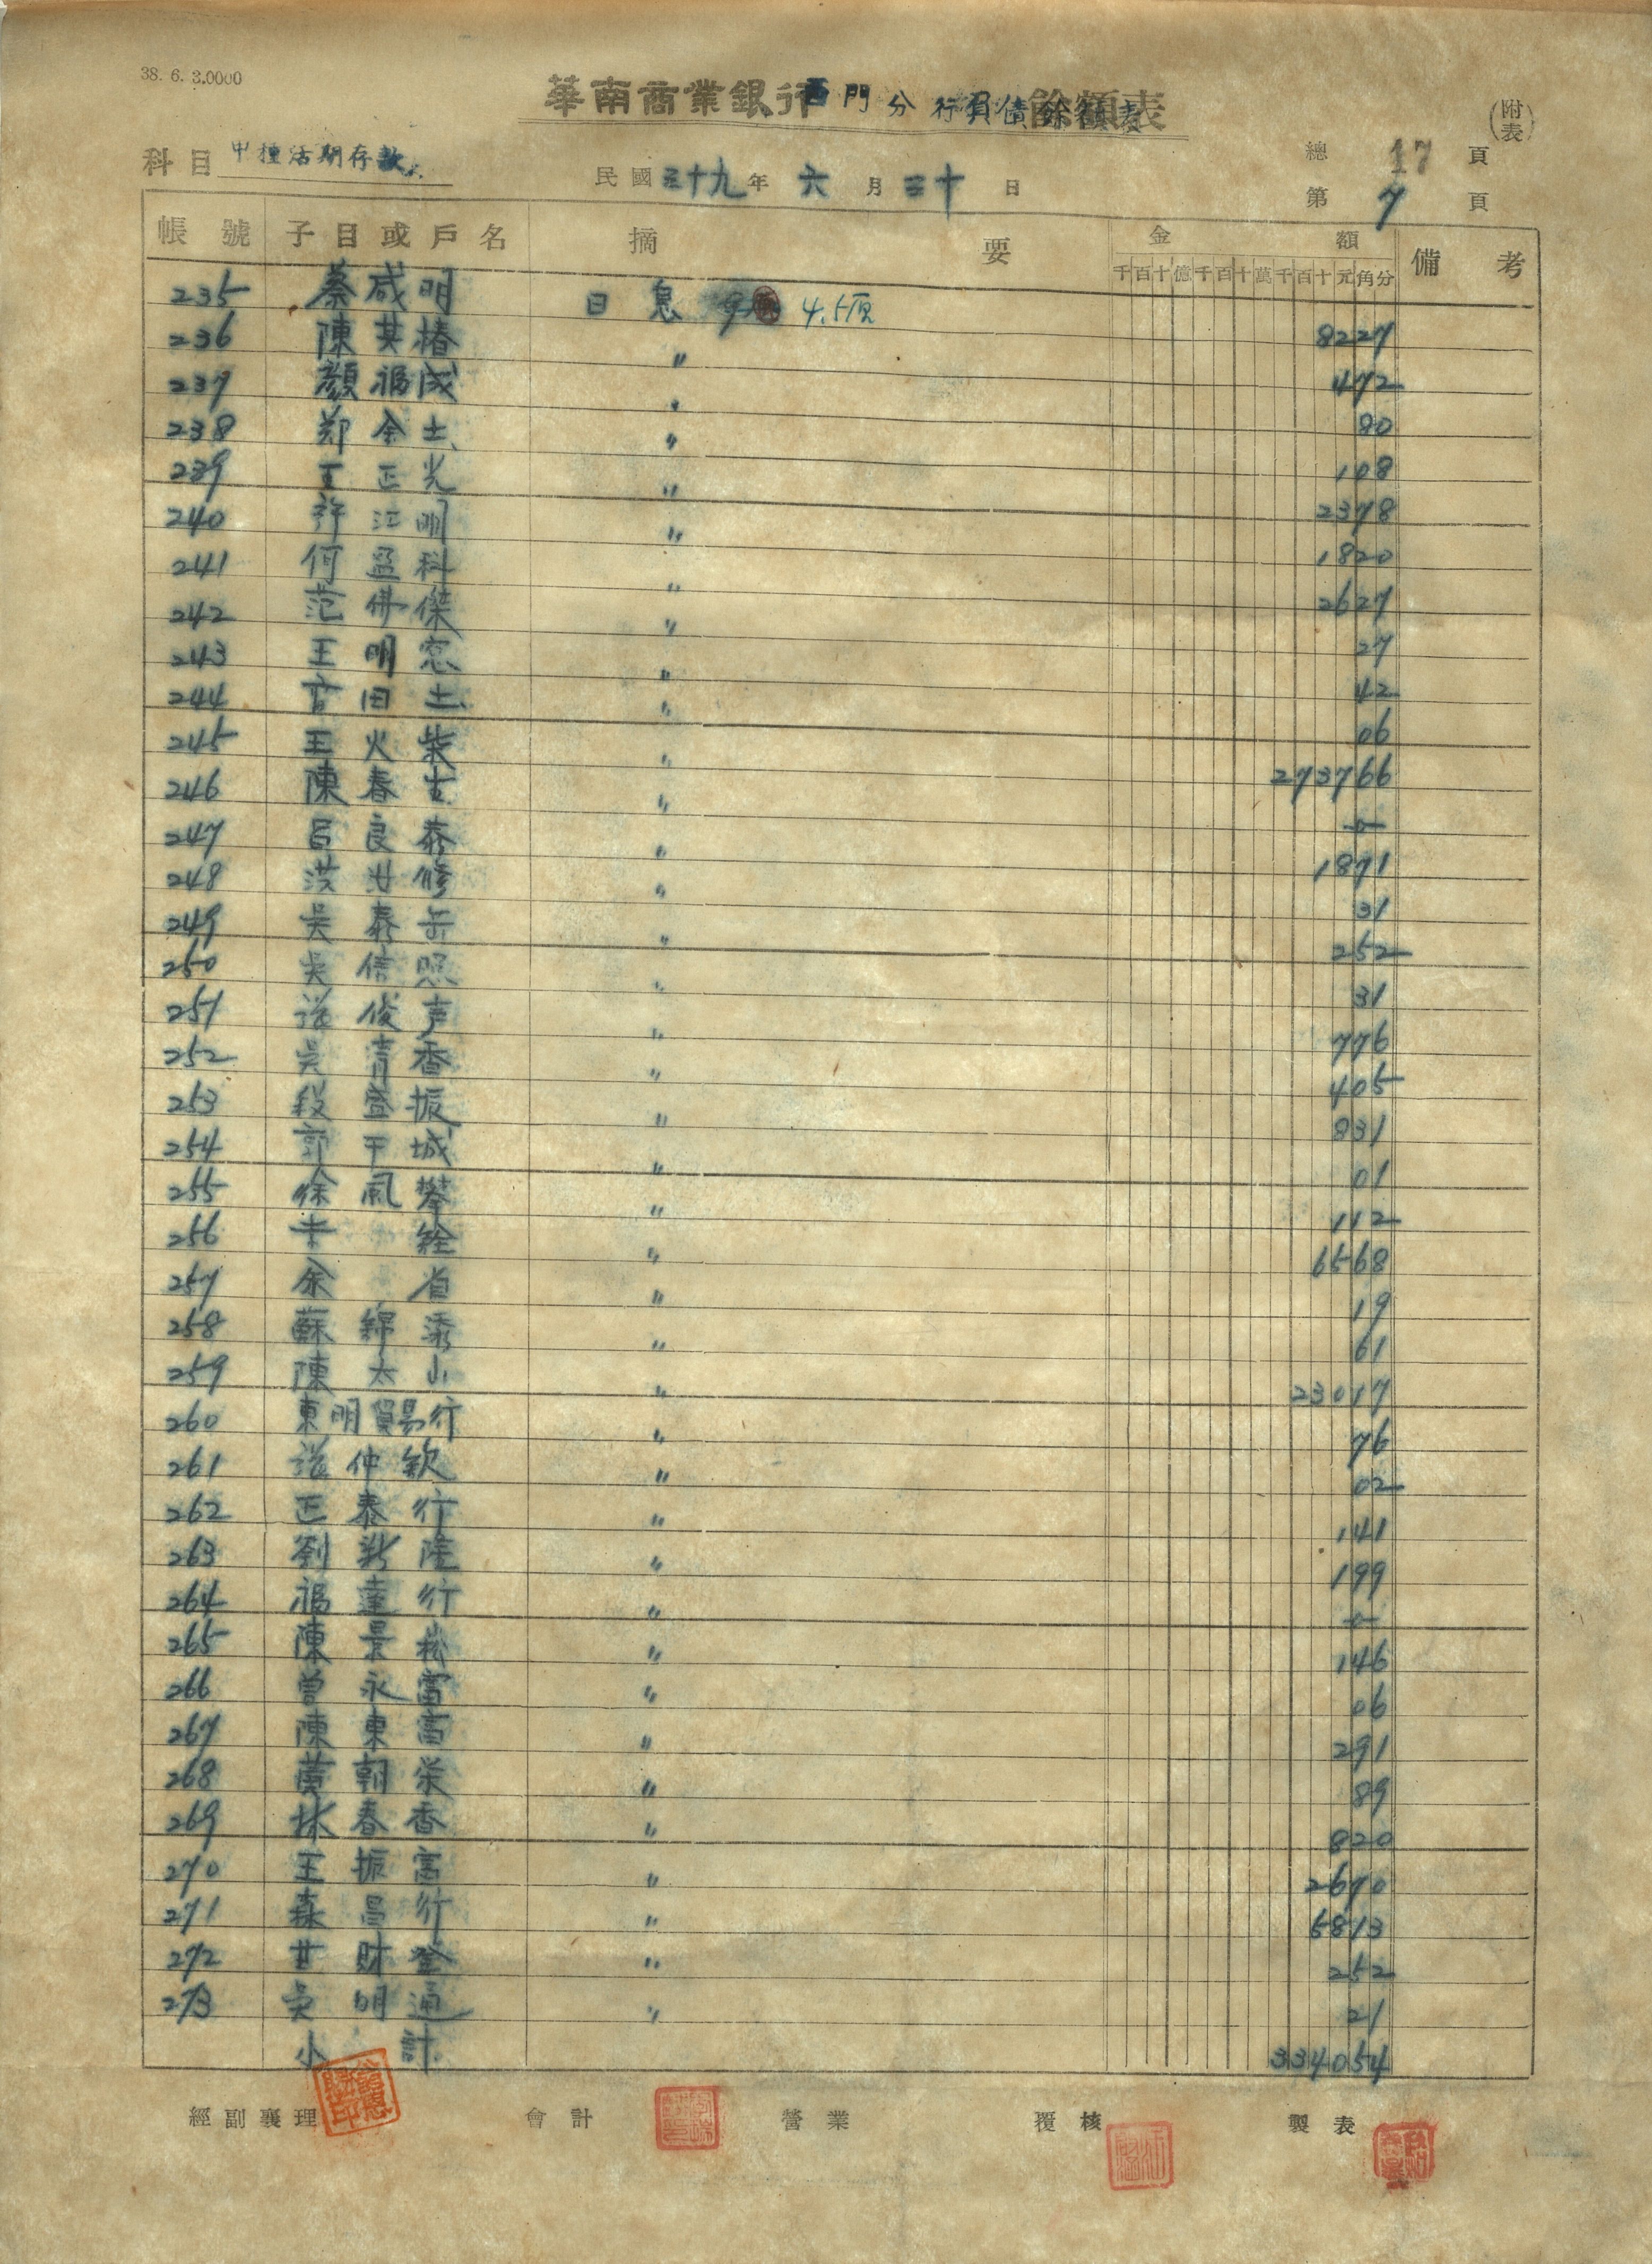 38. 6. 3.0000
華南商業銀行西門分行負債餘額表
(附表)
科目 甲種活期存款
民國三十九年六月三十日
總 17 頁
第 7 頁
帳號 子目或戶名 摘要 金額 備考
千百十億千百十萬千百十元角分
235 蔡咸明 日息 4.5厘 8227
236 陳其椿 〃 472
237 顏福成 〃 80
238 鄭金土 〃 108
239 王正光 〃 2378
240 許江明 〃 1820
241 何盈科 〃 2627
242 范佛傑 〃 27
243 王明窓 〃 42
244 官田土 〃 06
245 王火柴 〃 273766
246 陳春生 〃 -0-
247 呂良泰 〃 1871
248 洪 修 〃 31
249 吳泰岳 〃 252
250 吳信照 〃 31
251 俊声 〃 776
252 吳清香 〃 405
253 段盛振 〃 831
254 郭干城 〃 01
255 徐風攀 〃 112
256 銓 〃 6568
257 余省 〃 19
258 蘇錦添 〃 61
259 陳太山 〃 23017
260 東明貿易行 〃 76
261 仲欽 〃 02
262 正泰行 〃 141
263 劉新隆 〃 199
264 福達行 〃 -0-
265 陳景崧 〃 146
266 曾永富 〃 06
267 陳東富 〃 291
268 黃朝栄 〃 89
269 林春香 〃 820
270 王振富 〃 2670
271 森昌行 〃 6813
272 甘財登 〃 252
273 吳明通 〃 21
小計 334054
經副襄理 會計 營業 覆核 製表